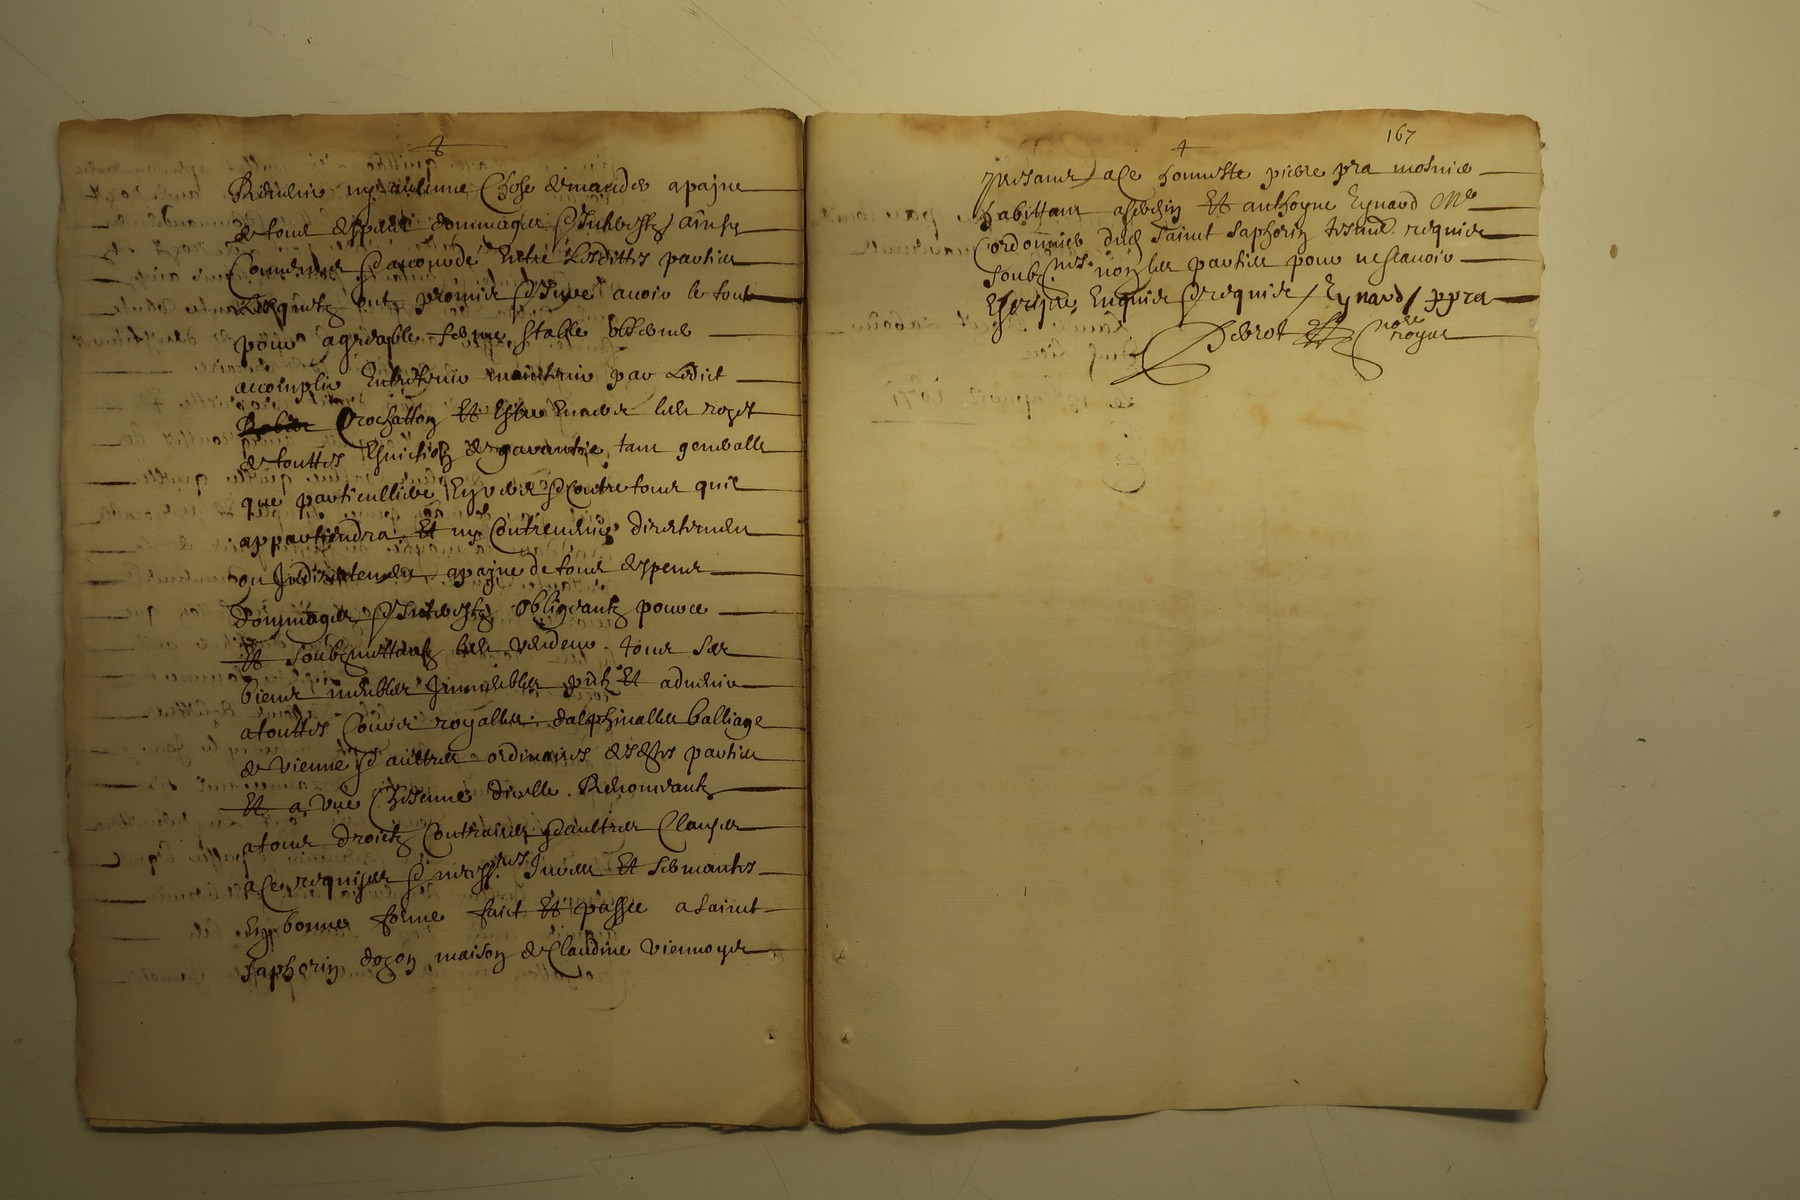 Retenir ny aulcune Chose demander apajne
de tous despans dommages & Intherestz ainsy
Convenu & accorde Entre Lesdittes parties
Lesquelz ont promis & Jure avoir le tout
pour agreable ferme stable
accomplir Entretenir maintenir par Ledict
Crochatton Et Estre
de touttes Esviction & garantie tant generalle
que particulliere Envers & contre tous quil
appartiendra Et ny Contrevenir directement
ou Jndirectement apajne de tous despens
Dommages & Intherestz obligeantz pour ce
Et soubzmettantz tous ses
biens meubles Jmmeubles pntz Et advenir
atouttes Cours royalles dalphinalles balliage
de vienne & aultres ordinaires desdtes parties
Et a vne Chescune dicelle Renonceantz
atous droictz Contraires & aultres Clauses
ace requises & necess.res Jurees Et sermantes
En bonne forme faict Et passee a sainct
saphorin dozon maison de Claudine viennoyse
4 167
presans ace honneste pierre pra
habittant Et anthoyne Eynard Me
Cordonnier dud sainct saphorin requis
soubz.nes non les parties pour ne scavoir
Escripre Enquis & requis / Eynard / ppra
nore royal